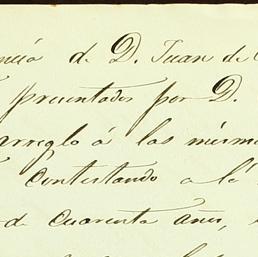 de D. Juan de
presentados por D.
arreglo á las mismas
contestando a la
de cuarenta años,